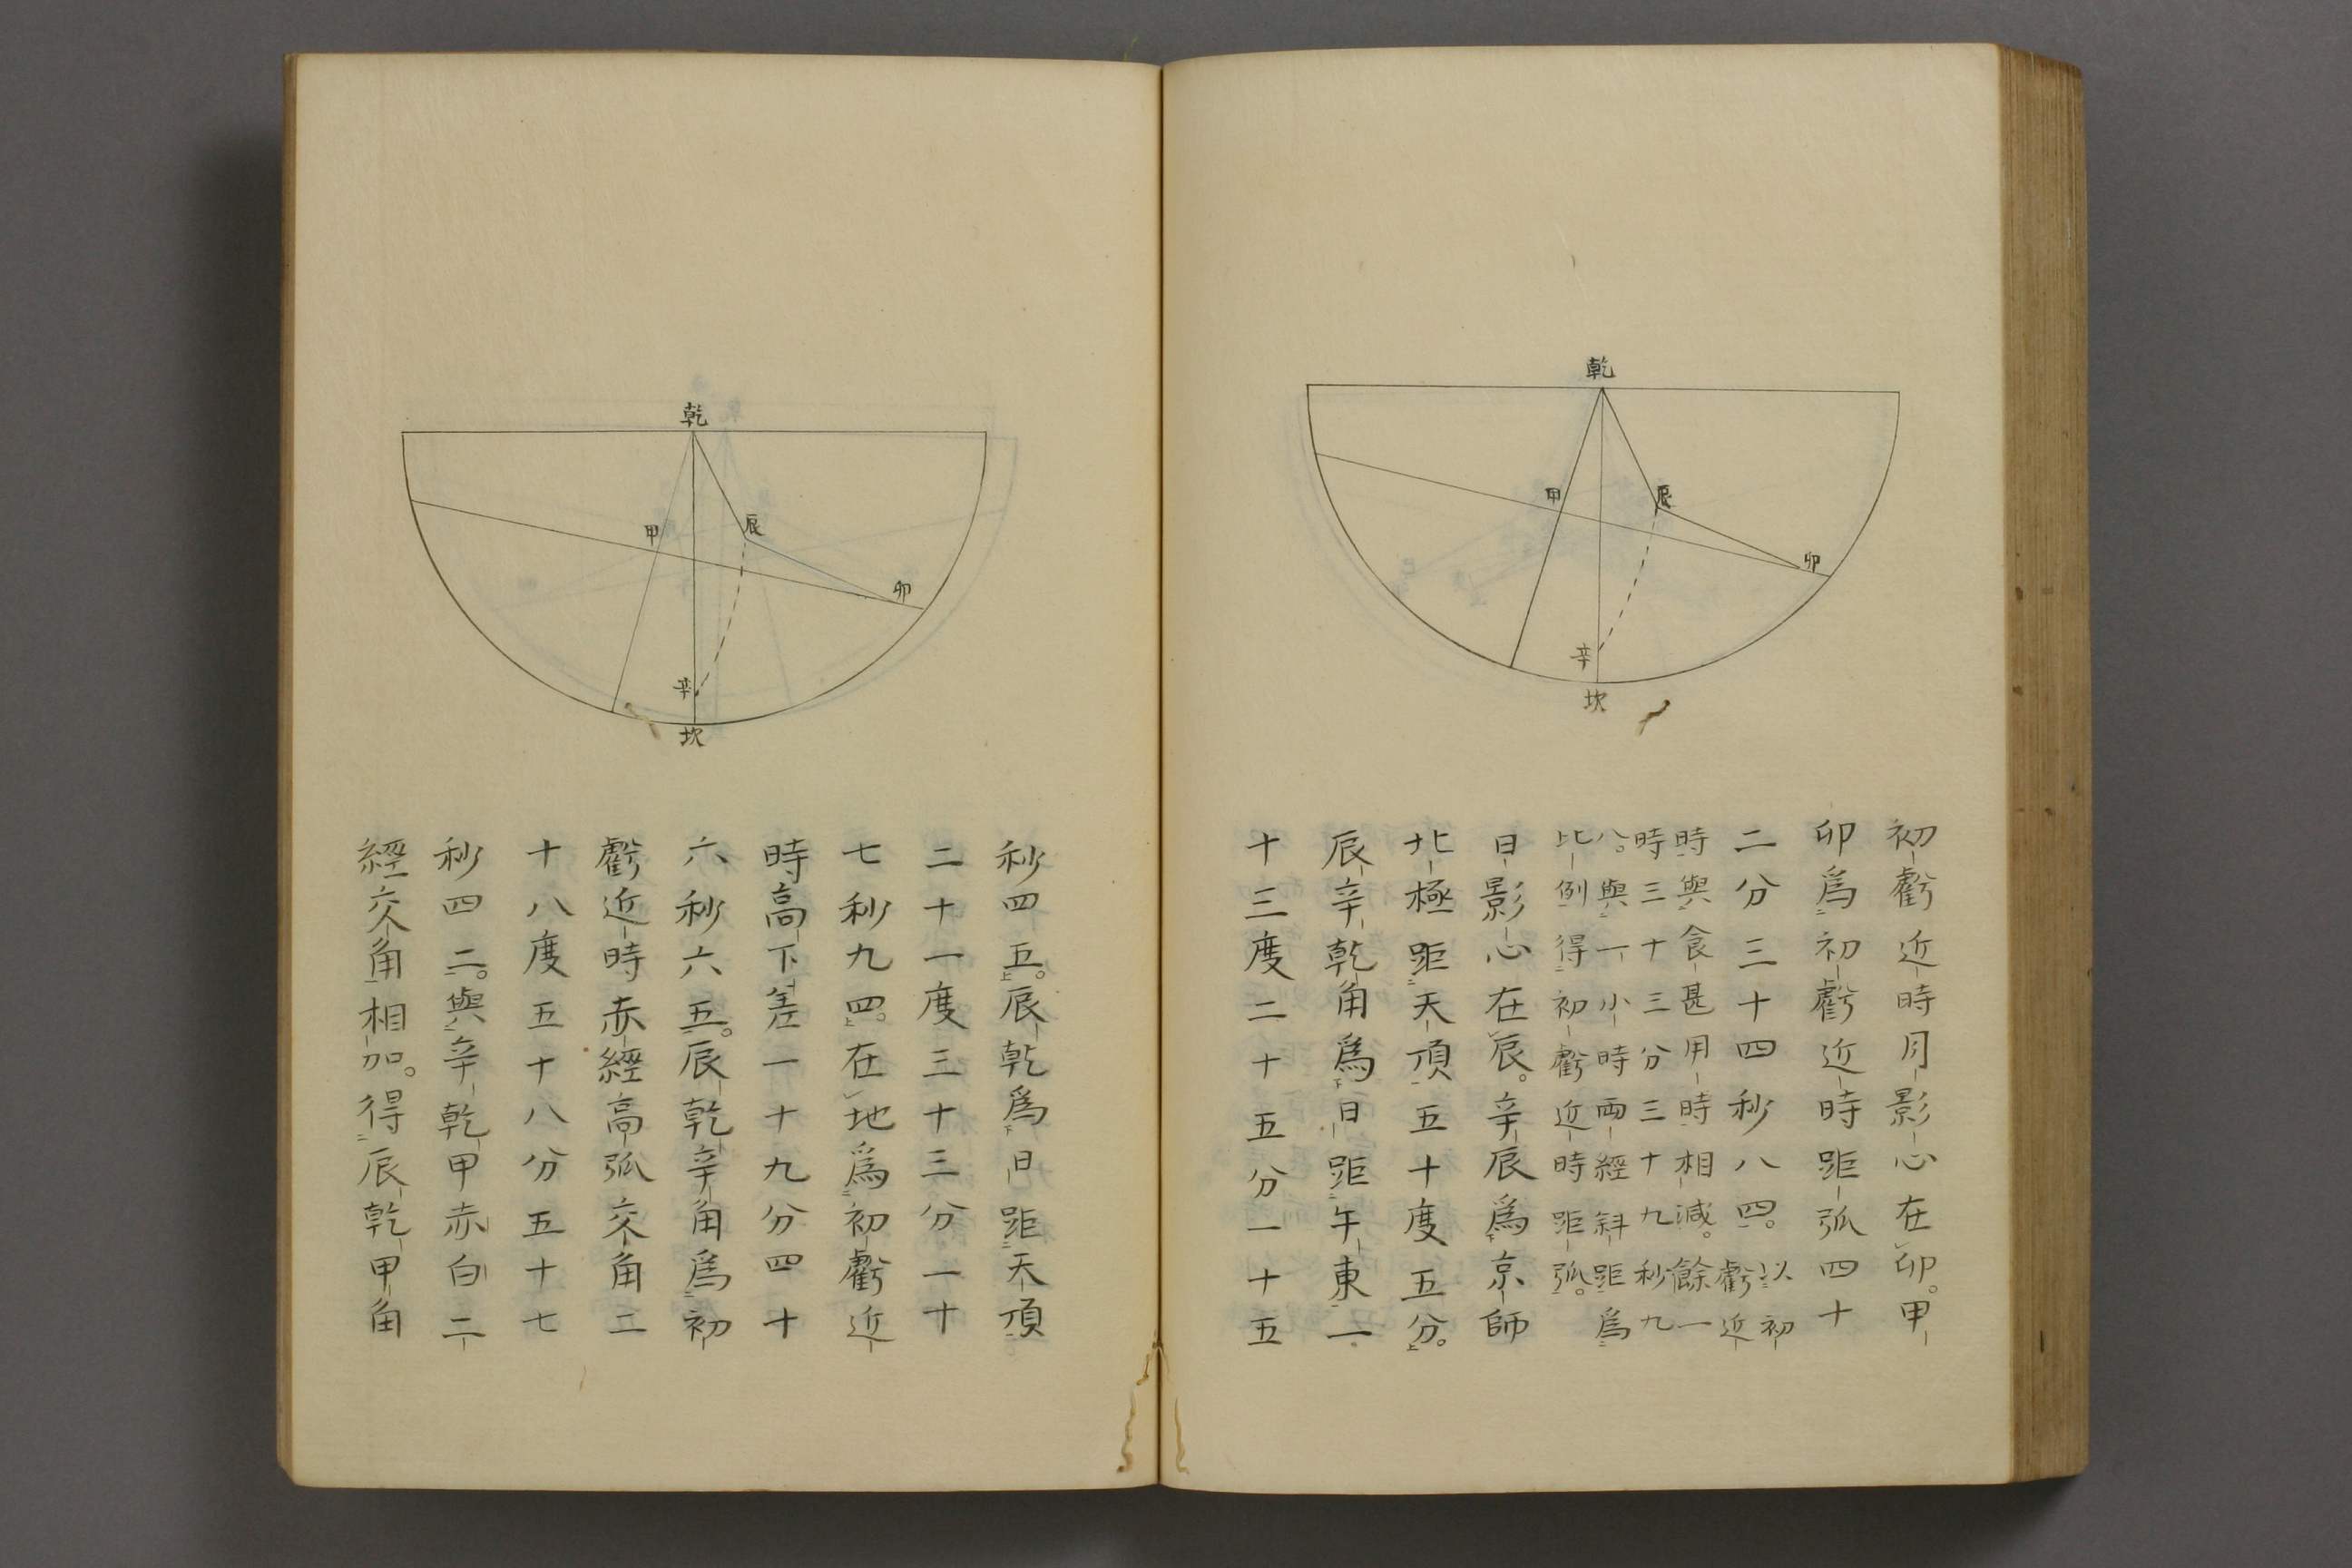 乾
甲
辰
卯
辛
坎
初虧近時月影心在卯。甲
卯爲初虧近時距弧四十
二分三十四秒八四。
以初
虧近
時與食甚用時相減。餘一
時三十三分三十九秒九
八。與一小時兩經斜距爲
比例得初虧近時距弧。
日影心在辰。辛辰爲京師
北極距天頂五十度五分。
辰辛乾角爲日距午東一
十三度二十五分一十五
乾
甲
辰
卯
辛
坎
秒四五。辰乾爲日距天頂
二十一度三十三分一十
七秒九四。在地爲初虧近
時高下差一十九分四十
六秒六五。辰乾辛角爲初
虧近時赤經高弧交角二
十八度五十八分五十七
秒四二。與辛乾甲赤白二
經交角相加。得辰乾甲角